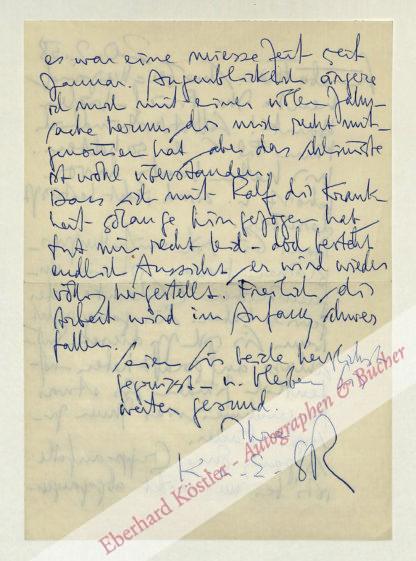 es war eine miese Zeit seit
Januar. Augenblicklich ärgere
ich mich mit einer üblen Zahn-
sache herum, die mich recht mit-
genommen hat, aber das schlimmste
ist wohl überstanden.
Dass sich mit Ralf die Krank-
heit solange hingezogen hat
tut mir recht leid - doch besteht
endlich Aussicht, er wird wieder
völlig hergestellt. Freilich, die
Arbeit wird im Anfang schwer
fallen.
Seien Sie beide herzlichst
gegrüsst - u. bleiben Sie
weiter gesund.
Ihre
Eberhard Köstler - Autographen & Bücher